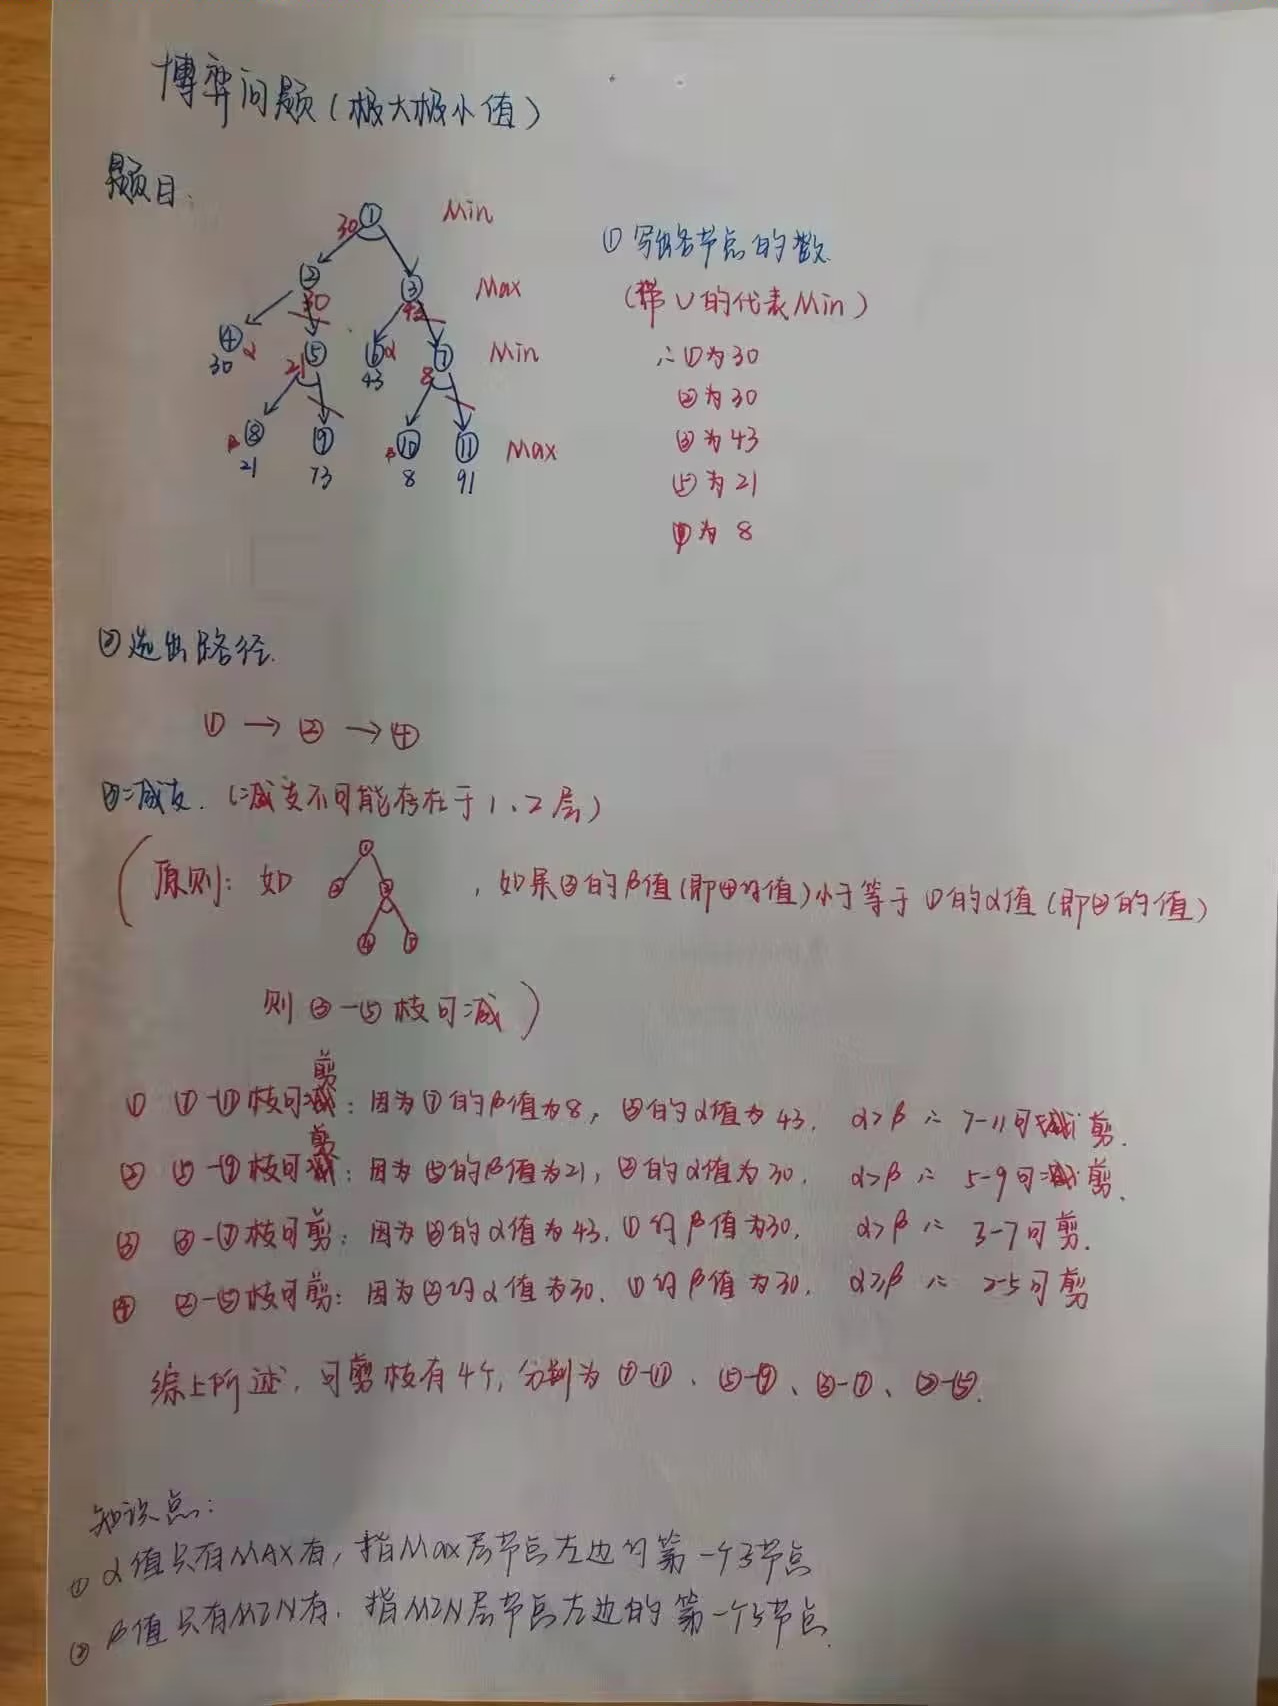 博弈问题(极大极小值)
题目:
30 ① Min
② 30 ③ 43 Max
④ α 30 21 ⑤ ⑥ α 43 8 ⑦ Min
β ⑧ ⑨ β ⑩ ⑪ Max
21 73 8 91
① 写出各节点的数
(带∪的代表Min)
∴ ①为30
②为30
③为43
⑤为21
⑦为 8
②选出路径.
① → ② → ④
③减支. (减支不可能存在于1、2层)
(原则: 如 ① ② ③ ④ ⑤ , 如果③的β值(即④的值)小于等于①的α值(即②的值)
则③-⑤枝可减)
① ⑦-⑪枝可剪: 因为⑦的β值为8, ③的α值为43. α>β ∴ 7-11可剪.
② ⑤-⑨枝可剪: 因为⑤的β值为21, ②的α值为30. α>β ∴ 5-9可剪.
③ ③-⑦枝可剪: 因为③的α值为43. ①的β值为30. α>β ∴ 3-7可剪.
④ ②-⑤枝可剪: 因为②的α值为30. ①的β值为30. α≥β ∴ 2-5可剪
综上所述, 可剪枝有4个, 分别为⑦-⑪、⑤-⑨、③-⑦、②-⑤.
知识点:
① α值只有MAX有, 指Max层节点左边的第一个子节点
② β值只有MIN有. 指MIN层节点左边的第一个子节点.